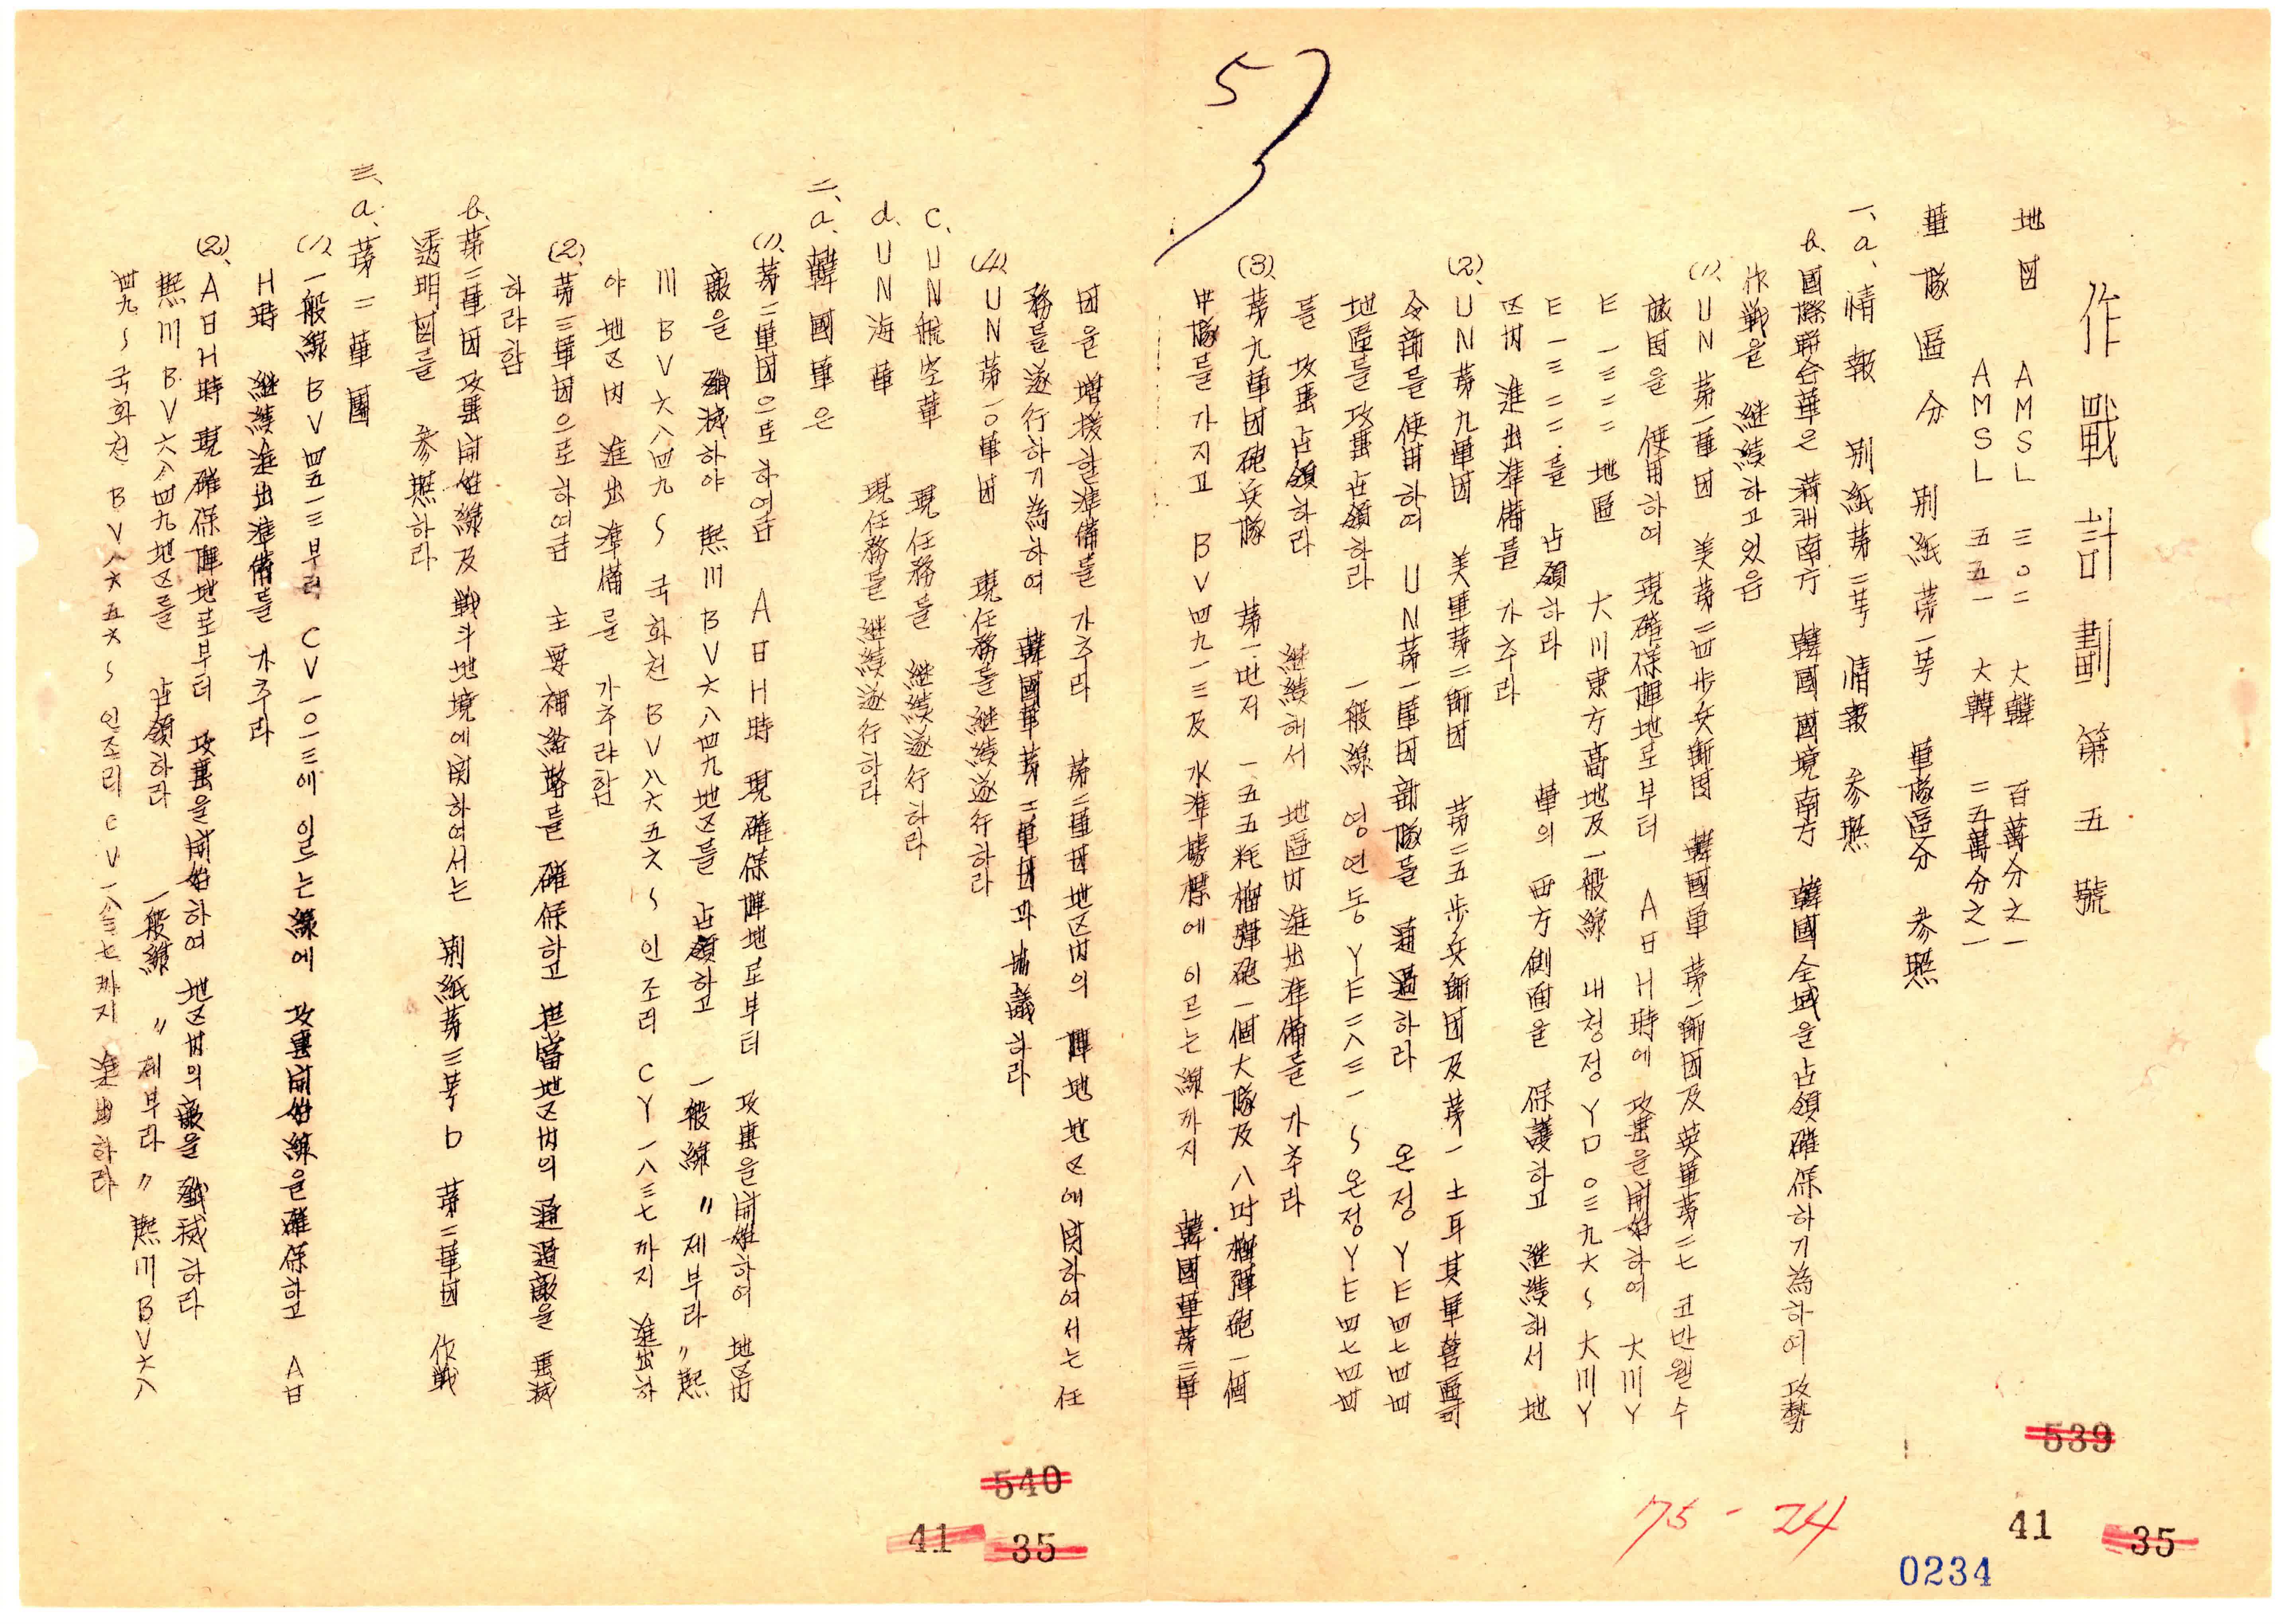 作戰計劃第五號
地図 AMSL 三〇二 大韓 百萬分之一
AMSL 五五一 大韓 二五萬分之一
軍隊區分 別紙第一号 軍隊區分 参照
一、a、情報 別紙第二号 情報 参照
b. 國際聯合軍은 満洲南方 韓國國境南方 韓國全域을 占領確保하기為하여 攻勢
作戰을 継続하고있음
(1) UN第一軍団 美第二四歩兵師団 韓國軍 第一師団及英軍第二七 코만웰수
旅団을 使用하여 現確保陣地로부터 A日H時에 攻撃을開始하여 大川Y
E一三二二 地區 大川東方高地及一般線 내청정YD〇三九六〜大川Y
E一三二二.를 占領하라 軍의 西方側面을 保護하고 継続해서 地
区内 進出準備를 가추라
(2) UN第九軍団 美軍第二師団 第二五歩兵師団及第一土耳其軍営團
令部를 使用하여 UN第一軍団部隊를 通過하라 온정YE四七四四
地區를攻撃占領하라 一般線 영연동YE二八三一〜온정YE四七四四
를 攻撃占領하라 継続해서 地區内進出準備를 가추라
(3) 第九軍団砲兵隊 第一・먼저 一五五粍榴弾砲一個大隊及八吋榴弾砲一個
中隊를 가지고 BV四九一三及 水準標에 이르는 線까지 韓國軍第二軍
団을 増援할準備를 가추라 第二軍団地区内의 陣地地区에 関하여서는 任
務를遂行하기為하여 韓國軍第二軍団과 協議하라
(4) UN第一〇軍団 現任務를継続遂行하라
c. UN航空軍 現任務를 継続遂行하라
d. UN海軍 現任務를 継続遂行하라
二、a、韓國軍은
(1) 第二軍団으로 하여금 A日H時 現確保陣地로부터 攻撃을開始하여 地区内
敵을 殲滅하야 熙川BV六八四九地区를 占領하고 一般線 〃제부라〃熙
川BV六八四九〜국화천BV八六五六〜인조리CY一八三七까지 進出하
야 地区内 進出準備를 가추랴함
(2) 第三軍団으로하여금 主要補給路를 確保하고 担當地区内의 通過敵을 撃滅
하랴함
b. 第二軍団攻撃開始線及戦斗地境에関하여서는 別紙第三号b 第二軍団 作戦
透明図를 参照하라
三、a、第二軍團
(1) 一般線BV四五一三부터 CV一〇一三에 일으는線에 攻撃開始線을確保하고 A日
H時 継続進出準備를 가추라
(2) A日H時 現確保陣地로부터 攻撃을開始하여 地区内의敵을 殲滅하라
熙川BV六八四九地区를 占領하라 一般線 〃제부라〃 熙川BV六八
四九〜국화천BV八六五六〜인조리CV一八三七까지 進出하라
57
539
41 35
0234
75-24
540
41 35